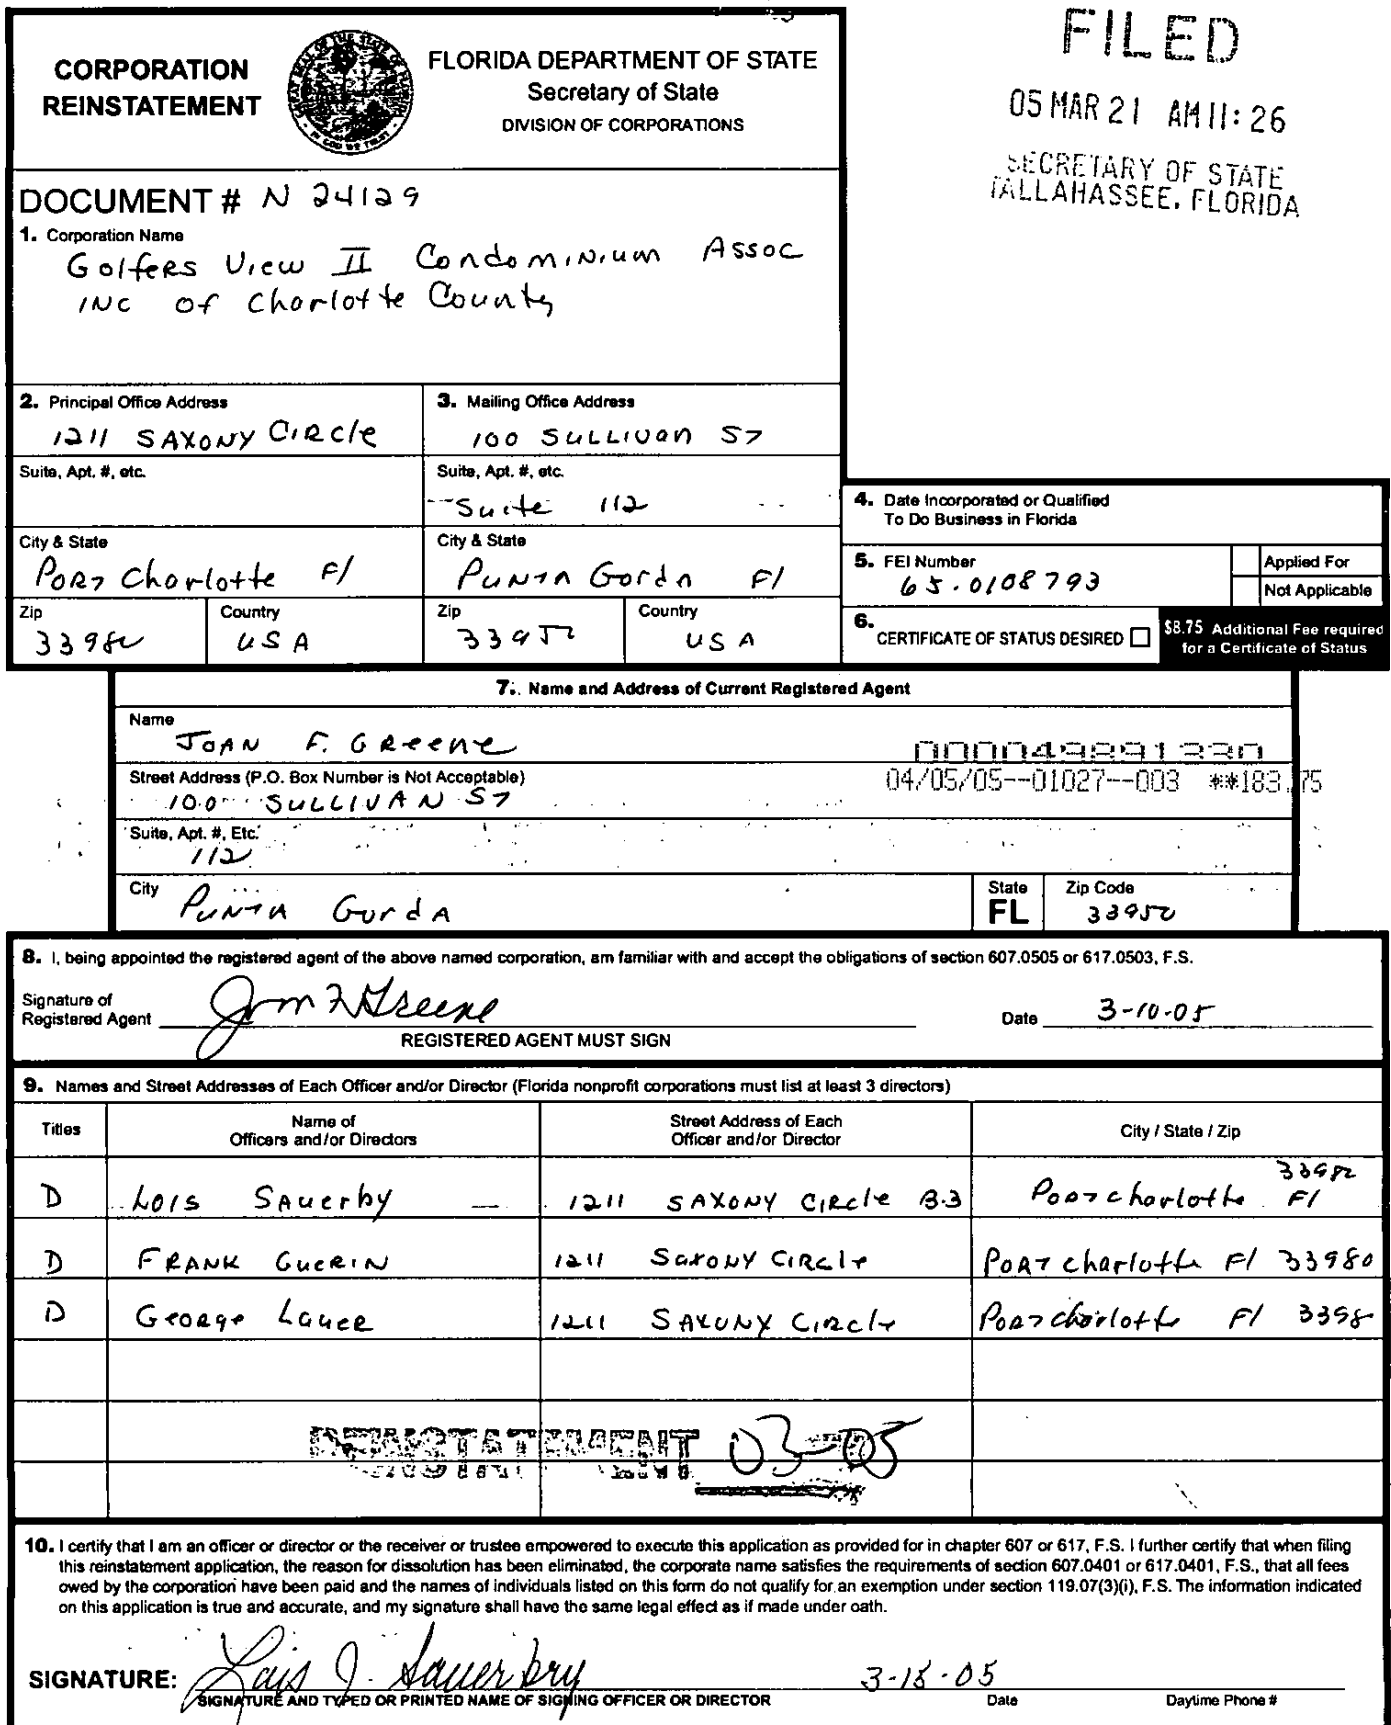 FILED
05 MAR 21 AM 11:26
SECRETARY OF STATE
TALLAHASSEE, FLORIDA
CORPORATION
REINSTATEMENT
FLORIDA DEPARTMENT OF STATE
Secretary of State
DIVISION OF CORPORATIONS
DOCUMENT # N 24129
1. Corporation Name
Golfers View II Condominium Assoc
INC of Charlotte County
2. Principal Office Address
1211 SAXONY Circle
3. Mailing Office Address
100 SULLIVan ST
Suite, Apt. #, etc.
Suite, Apt. #, etc.
Suite 112
City & State
Port Charlotte Fl
City & State
Punta Gorda Fl
Zip
Country
USA
Zip
Country
USA
4. Date Incorporated or Qualified
To Do Business in Florida
5. FEI Number
65.0108793
Applied For
Not Applicable
6. CERTIFICATE OF STATUS DESIRED
$8.75 Additional Fee required
for a Certificate of Status
7. Name and Address of Current Registered Agent
Name
JOAN F. GReene
000049891330
Street Address (P.O. Box Number is Not Acceptable)
04/05/05--01027--003 **183.75
100 SULLIVAN ST
Suite, Apt. #, Etc.
112
City
Punta Gorda
State
FL
Zip Code
33950
8. I, being appointed the registered agent of the above named corporation, am familiar with and accept the obligations of section 607.0505 or 617.0503, F.S.
Signature of
Registered Agent
Joan F Greene
Date 3-10-05
REGISTERED AGENT MUST SIGN
9. Names and Street Addresses of Each Officer and/or Director (Florida nonprofit corporations must list at least 3 directors)
Titles
Name of
Officers and/or Directors
Street Address of Each
Officer and/or Director
City / State / Zip
D Lois Sauerby 1211 SAXONY Circle B-3 Port Charlotte Fl
D FRANK GUERIN 1211 Saxony Circle Port Charlotte Fl 33980
D George Lauer 1211 SAXONY Circle Port Charlotte Fl
REINSTATEMENT 03-05
10. I certify that I am an officer or director or the receiver or trustee empowered to execute this application as provided for in chapter 607 or 617, F.S. I further certify that when filing
this reinstatement application, the reason for dissolution has been eliminated, the corporate name satisfies the requirements of section 607.0401 or 617.0401, F.S., that all fees
owed by the corporation have been paid and the names of individuals listed on this form do not qualify for an exemption under section 119.07(3)(i), F.S. The information indicated
on this application is true and accurate, and my signature shall have the same legal effect as if made under oath.
SIGNATURE: Lois J. Sauerbry
SIGNATURE AND TYPED OR PRINTED NAME OF SIGNING OFFICER OR DIRECTOR
Date
Daytime Phone #